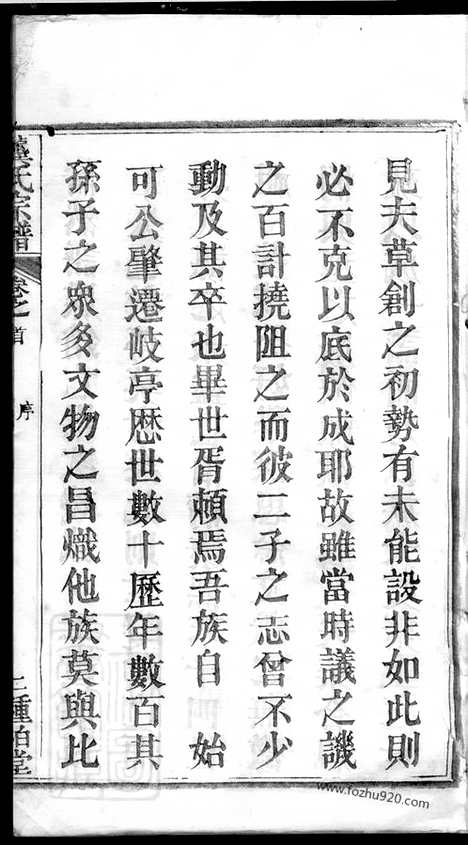 見夫草創之初勢有未能設非如此則
必不克以底於成耶故雖當時議之譏
之百計撓阻之而彼二子之志曾不少
動及其卒也畢世胥頼焉吾族自 始
可公肇遷岐亭歴世數十歷年數百其
孫子之衆多文物之昌熾他族莫與比
氏宗譜 卷之首 序
www.fozhu920.com